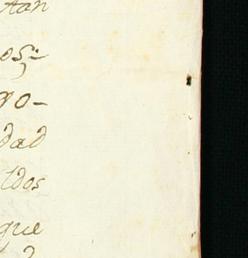 tan
os:-
go-
dad
ldos
que